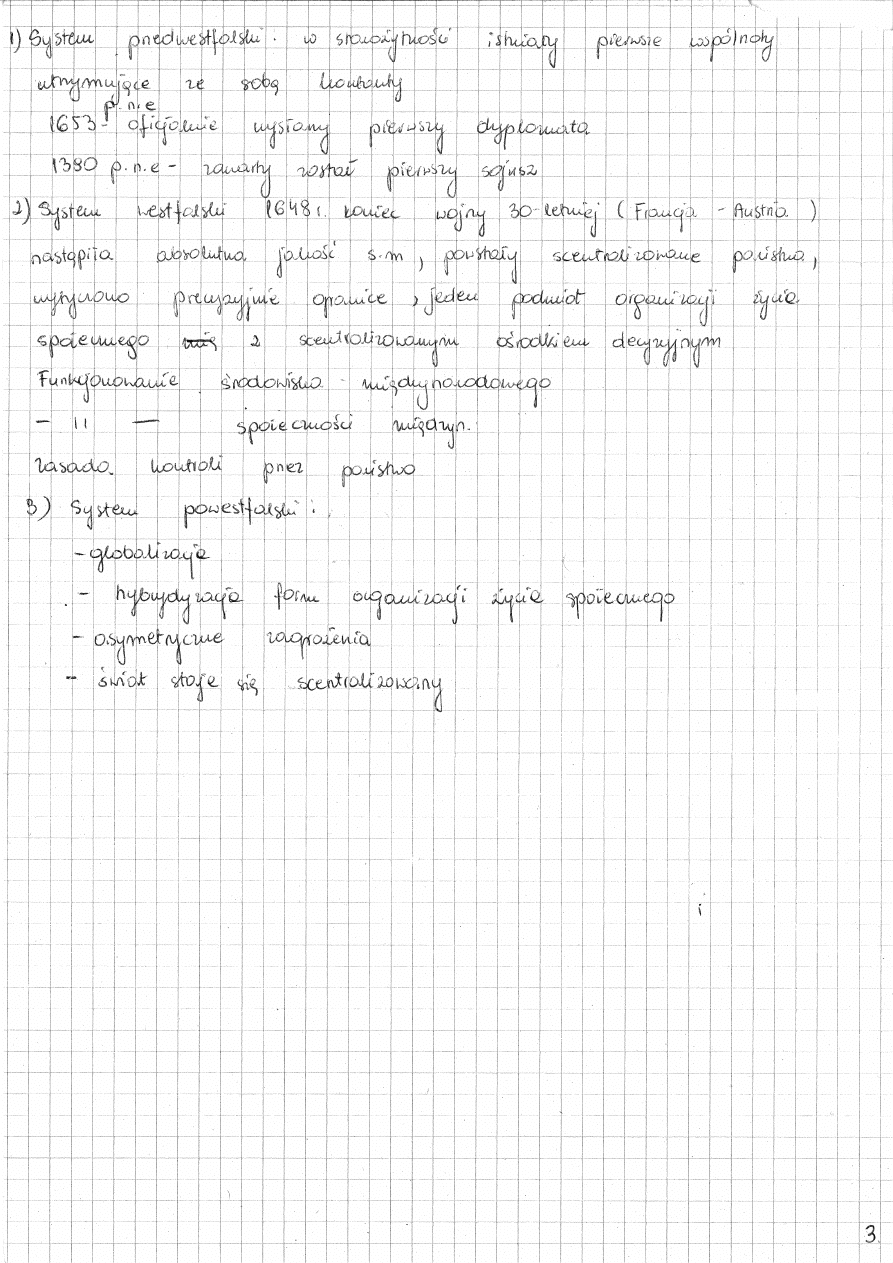 1) System przedwestfalski. w starożytności istniały pierwsze wspólnoty
utrzymujące ze sobą kontakty
p.n.e
1653 - oficjalnie wysłany pierwszy dyplomata
1380 p.n.e - zawarty został pierwszy sojusz
2) System westfalski 1648 r. koniec wojny 30-letniej (Francja - Austria)
nastąpiła absolutna jakość s.m, powstały scentralizowane państwa,
wytyczono precyzyjnie granice, jeden podmiot organizacji życia
społecznego z scentralizowanym ośrodkiem decyzyjnym
Funkcjonowanie środowiska międzynarodowego
- 11 - społeczności międzyn.
zasada kontroli przez państwo
3) System powestfalski:
- globalizacja
- hybrydyzacja form organizacji życia społecznego
- asymetryczne zagrożenia
- świat staje się scentralizowany
i
3